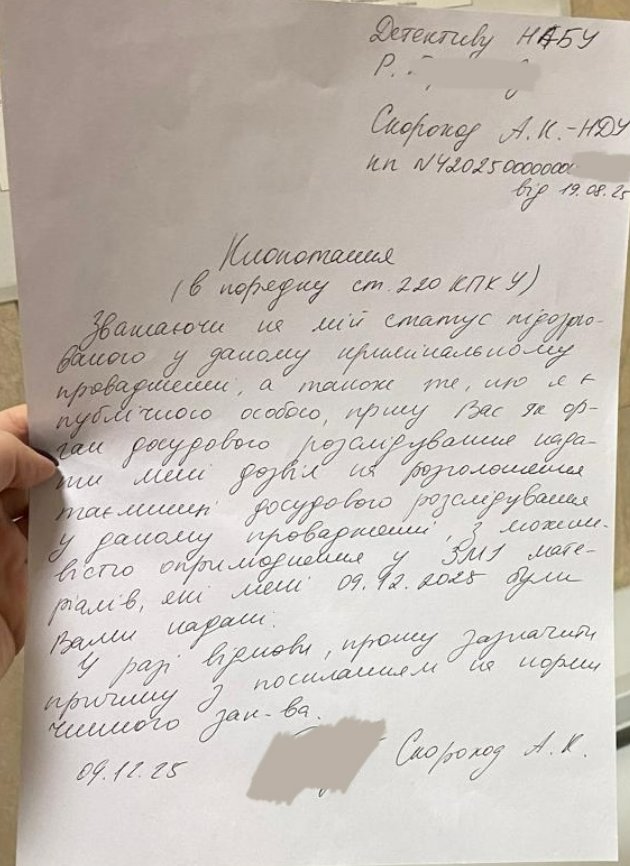 Детективу НАБУ
Р. Г
Скороход А.К. - НДУ
кп №42025000000
від 19.08.25
Клопотання
(в порядку ст. 220 КПКУ)
Зважаючи на мій статус підозрю-
ваного у даному кримінальному
провадженні, а також те, що я є
публічною особою, прошу Вас як ор-
ган досудового розслідування нада-
ти мені дозвіл на розголошення
таємниці досудового розслідування
у даному провадженні, з можли-
вістю оприлюднення у ЗМІ мате-
ріалів, які мені 09.12.2025 були
Вами надані.
У разі відмови, прошу зазначити
причину з посиланням на норми
чинного зак-ва.
09.12.25
Скороход А.К.